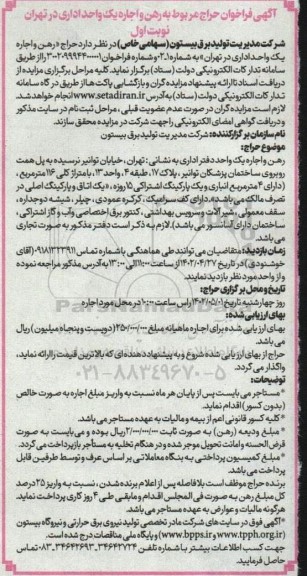 آگهی فراخوان حراج مربوط به رهن و اجاره یک واحد اداری در تهران
نوبت اول
شرکت مدیریت تولید برق بیستون (سهامی خاص) در نظر دارد حراج «رهن و اجاره
یک واحد اداری در تهران» به شماره ۱-۲ و شماره فراخوان را از طریق
سامانه تدارکات الکترونیکی دولت (ستاد) برگزار نماید. کلیه مراحل برگزاری مزایده از
دریافت اسناد تا ارائه پیشنهاد مزایده گران و بازگشایی پاکت ها، از طریق درگاه سامانه
تدارکات الکترونیکی دولت (ستاد) به آدرس www.setadiran.ir انجام خواهد شد.
لازم است مزایده گران در صورت عدم عضویت قبلی، مراحل ثبت نام در سایت مذکور
و دریافت گواهی امضای الکترونیکی را جهت شرکت در مزایده محقق سازند.
نام سازمان برگزارکننده: شرکت مدیریت تولید برق بیستون
موضوع حراج:
رهن و اجاره یک واحد دفتر اداری به نشانی: تهران، خیابان توانیر نرسیده به پل همت
روبروی ساختمان پزشکان توانیر، پلاک ۱۷، طبقه ۴، واحد ۱۳، با متراژ کلی ۱۱۶ مترمربع،
(دارای ۴ مترمربع انباری و یک پارکینگ اشتراکی ۱۵ روزه، «یک اتاق و پارکینگ اصلی در
تصرف مالک می باشد»، دارای کف سرامیک، کرکره عمودی، چیلر، شیشه دوجداره،
سقف معمولی، شیرآلات و سرویس بهداشتی، کنتور برق اختصاصی و آب و گاز اشتراکی،
ساختمان دارای آسانسور می باشد). لازم به ذکر است دفتر مذکور به صورت تجاری
می باشد.
زمان بازدید: متقاضیان می توانند طی هماهنگی با شماره تماس ۰۹۱۸۱۳۲۳۹۱۱ (آقای
خوشنودی) در تاریخ ۱۴۰۲/۰۴/۲۷ از ساعت ۱۱:۰۰ الی ۱۳:۰۰ به آدرس مذکور مراجعه نموده
و از واحد مورد نظر بازدید نمایند.
تاریخ و محل برگزاری حراج:
روز چهارشنبه تاریخ ۱۴۰۲/۰۵/۰۱ راس ساعت ۱۰:۰۰ در محل مورد اجاره
بهای ارزیابی شده:
بهای ارزیابی شده برای اجاره ماهیانه مبلغ ۲۵۰/۰۰۰/۰۰۰ (دویست و پنجاه میلیون) ریال
می باشد.
حراج از بهای ارزیابی شده شروع و به پیشنهاد دهنده ای که بالاترین قیمت را ارائه نماید،
واگذار می گردد.
توضیحات:
*مستاجر می بایست پس از پایان هر ماه نسبت به واریز مبلغ اجاره به صورت خالص
(بدون کسور) اقدام نماید.
*کلیه کسور قانونی اعم از بیمه و مالیات به عهده مستاجر می باشد.
*مبلغ ودیعه (رهن) به صورت ثابت ۲/۰۰۰/۰۰۰/۰۰۰ ریال بوده و می بایست به صورت
قرض الحسنه و امانت تحویل موجر شده و در هنگام تخلیه به مستأجر بازپرداخت می گردد.
*مبلغ کمیسیون پرداختی به بنگاه معاملاتی بر اساس عرف و توسط طرفین قابل
پرداخت می باشد.
برنده حراج موظف است بلافاصله پس از اعلام برنده شدن، نسبت به واریز ۲۵ درصد
کل مبلغ رهن به صورت فی المجلس اقدام و مابقی طی ۴ روز کاری پرداخت نماید.
هرگونه مالیات و عوارض به عهده مستاجر می باشد.
*آگهی فوق در سایت های شرکت مادر تخصصی تولید نیروی برق حرارتی و نیروگاه بیستون
(www.tpph.org.ir و www.bpps.ir) و پایگاه ملی مناقصات درج شده است.
جهت کسب اطلاعات بیشتر با شماره تلفن ۳۴۶۴۲۷۲۴-۳۴۶۴۲۶۹۳-۰۸۳ تماس
حاصل فرمایید.
۰۲۱-۸۸۳۴۹۶۷۰-۵